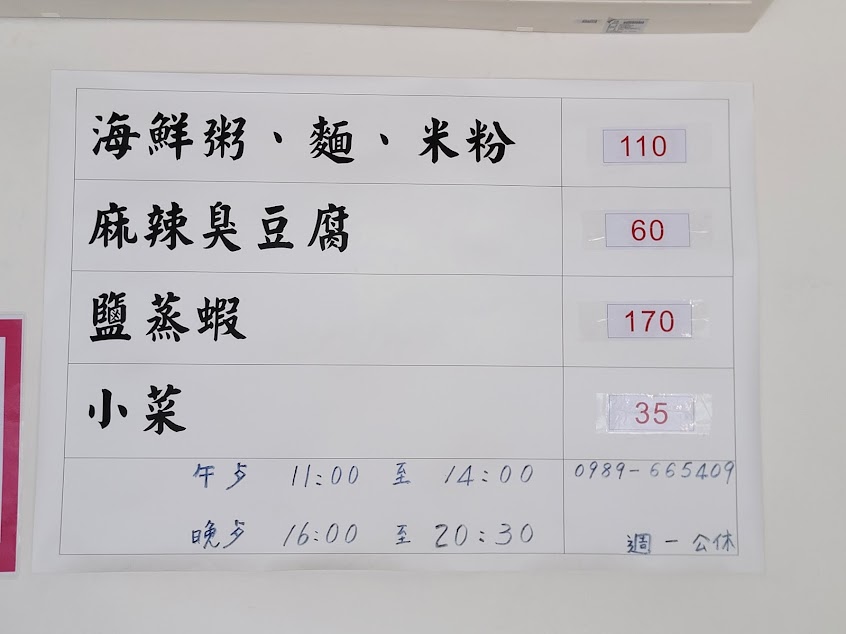 海鮮粥、麵、米粉 110
麻辣臭豆腐 60
鹽蒸蝦 170
小菜 35
午歺 11:00 至 14:00 0989-665409
晚歺 16:00 至 20:30 週一公休